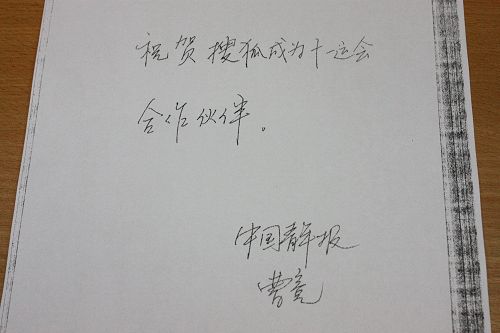 祝贺搜狐成为十一运会
合作伙伴。
中国青年报
曹竞